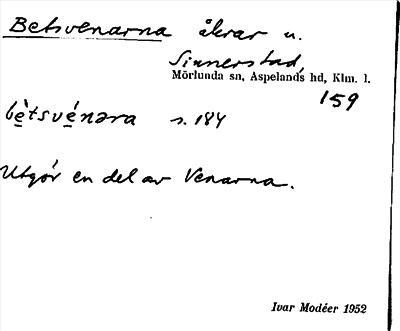 Betsvenarna åkrar u.
Sinnerstad,
Mörlunda sn, Aspelands hd, Klm. l.
159
bè̱tsvé̱nəra s. 184
Utgör en del av Venarna.
Ivar Modéer 1952